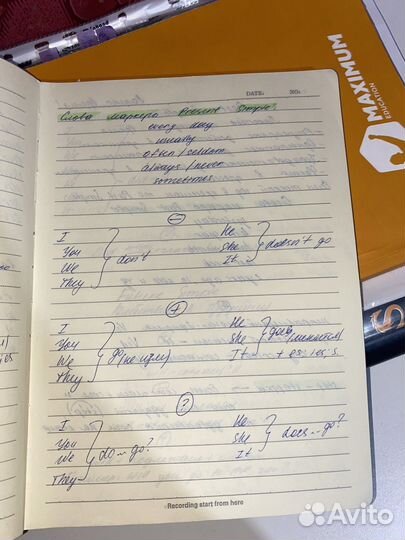 DATE: NO:
Слова маркеры Present Simple:
every day
usually
often / seldom
always / never
sometimes
−
I He
You don't She doesn't go
We It
They
+
I He goes
You go (не изм) She (меняется)
We It + es; ies; s.
They
?
I He
You do... go? She does... go?
We It
They
Recording start from here
MAXIMUM
EDUCATION
Avito